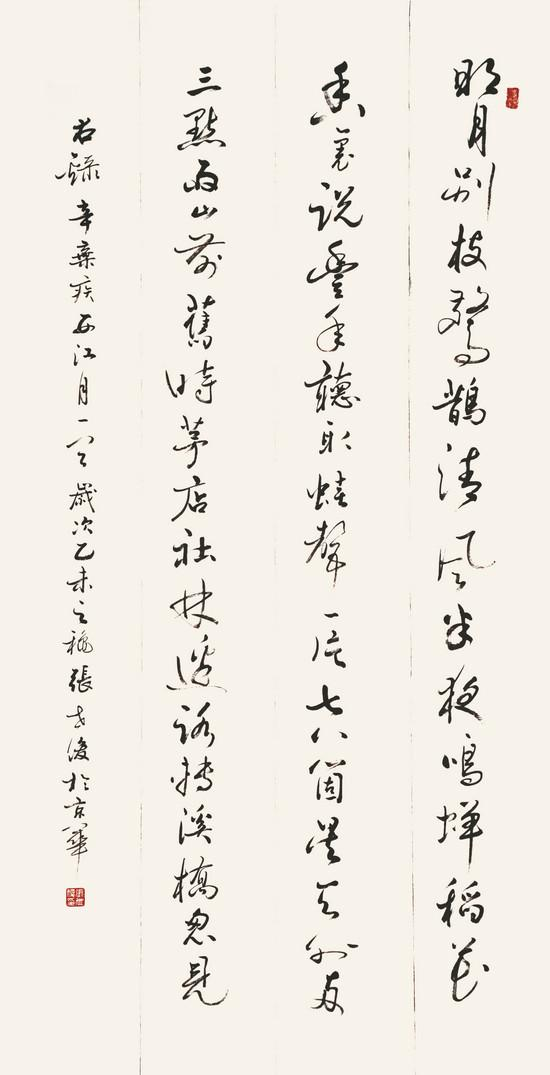 明月別枝驚鵲清風半夜鳴蟬稻花
香裏説豐年聽取蛙聲一片七八箇星天外兩
三點雨山前舊時茅店社林邊路轉溪橋忽見
右錄辛棄疾西江月一闋歲次乙未之穐張於京華